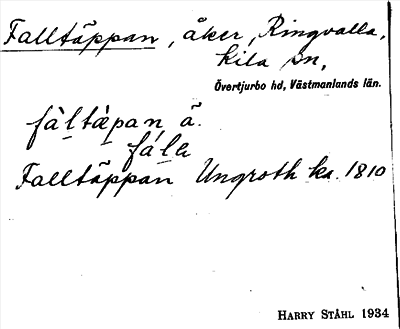 Falltäppan, åker, Ringvalla,
Kila sn,
Övertjurbo hd, Västmanlands län.
fàltæ̀pan ä.
fála
Falltäppan Ungroth ka. 1810
HARRY STÅHL 1934